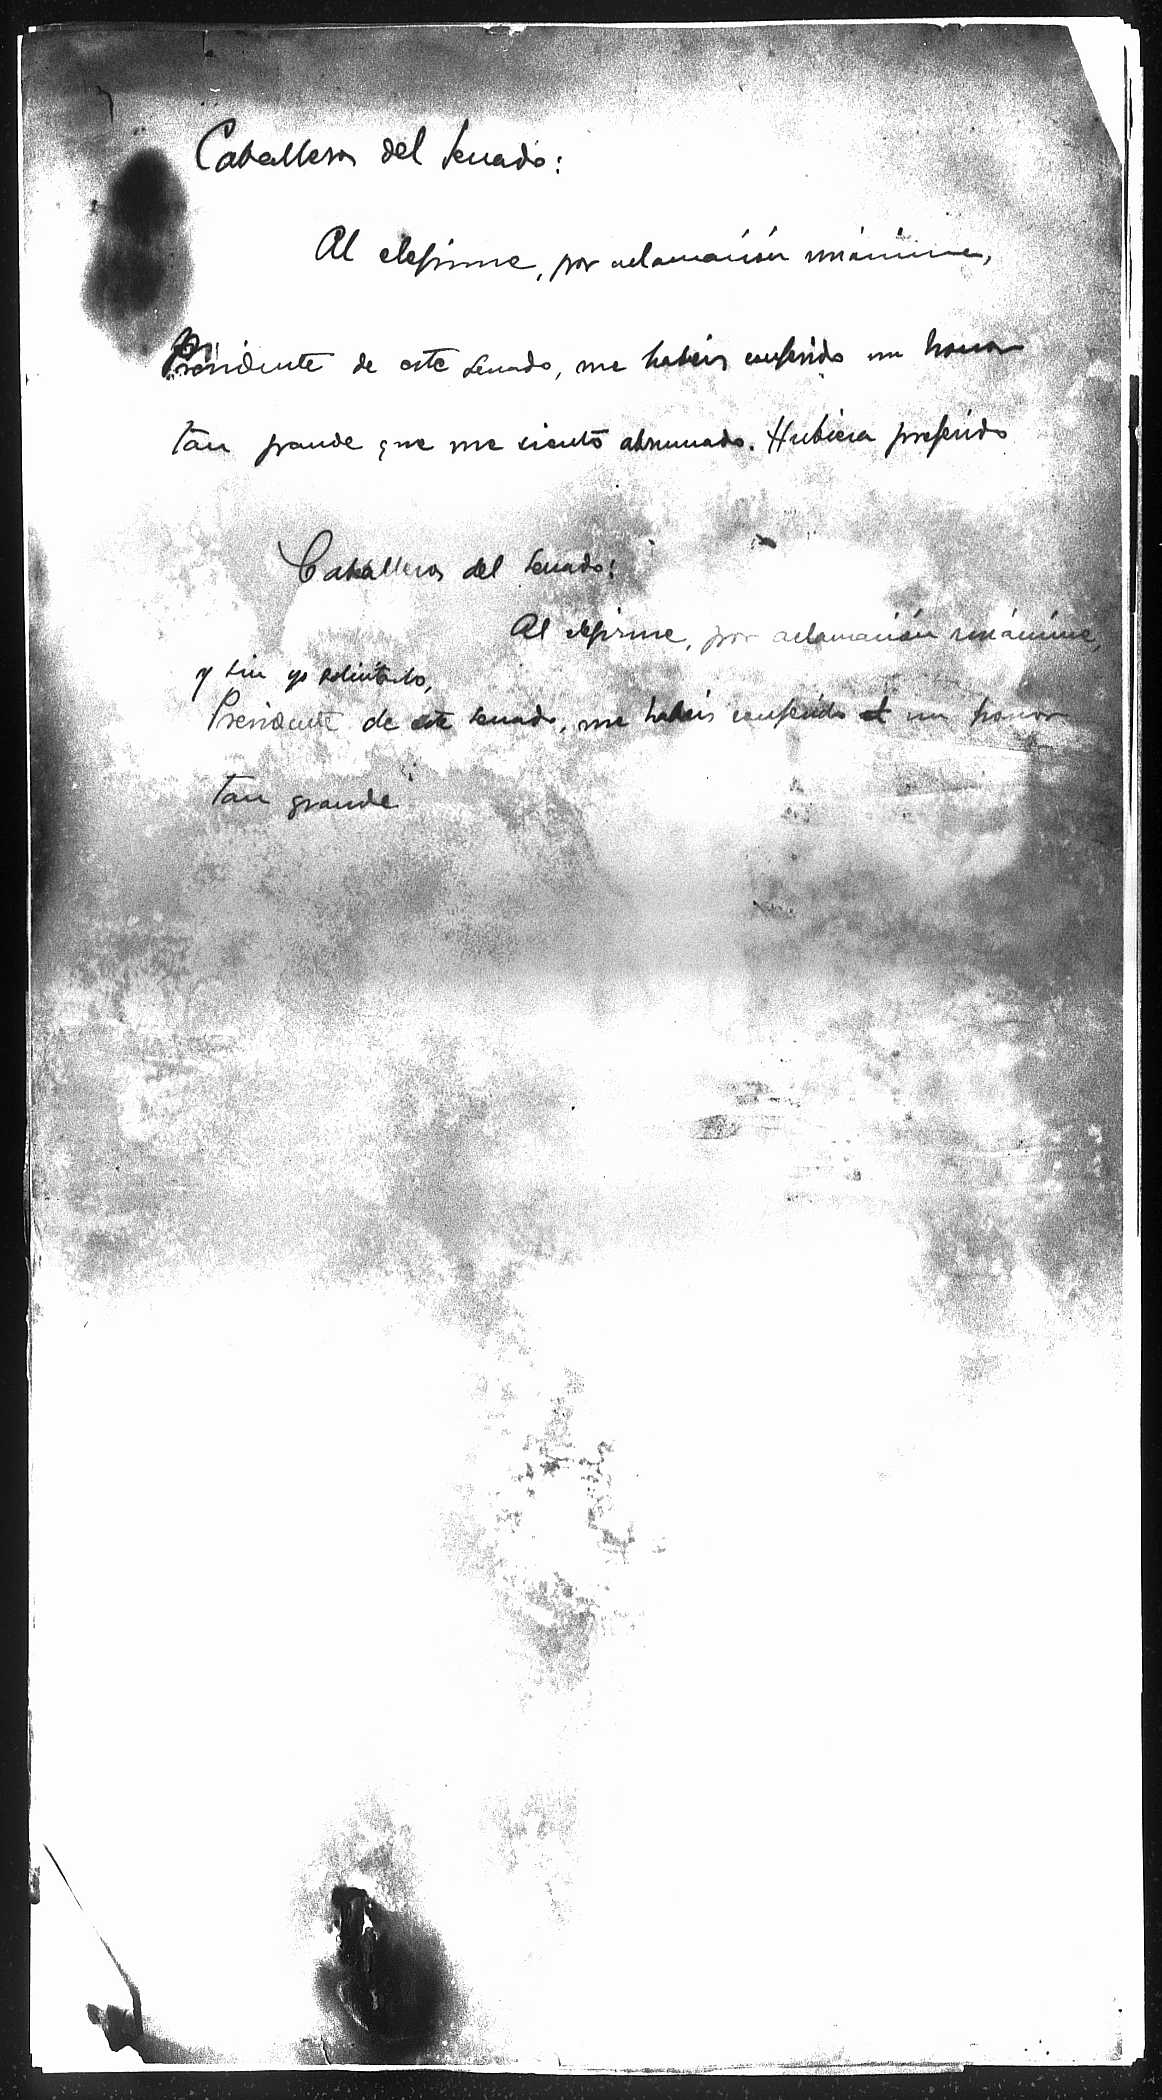 Caballeros del Senado:
Al elegirme, por aclamación unánime,
Presidente de este Senado, me habéis conferido un honor
tan grande que me siento abrumado. Hubiera preferido
Caballeros del Senado:
Al elegirme, por aclamación unánime,
y sin yo solicitarlo,
Presidente de este Senado, me habéis conferido un honor
tan grande